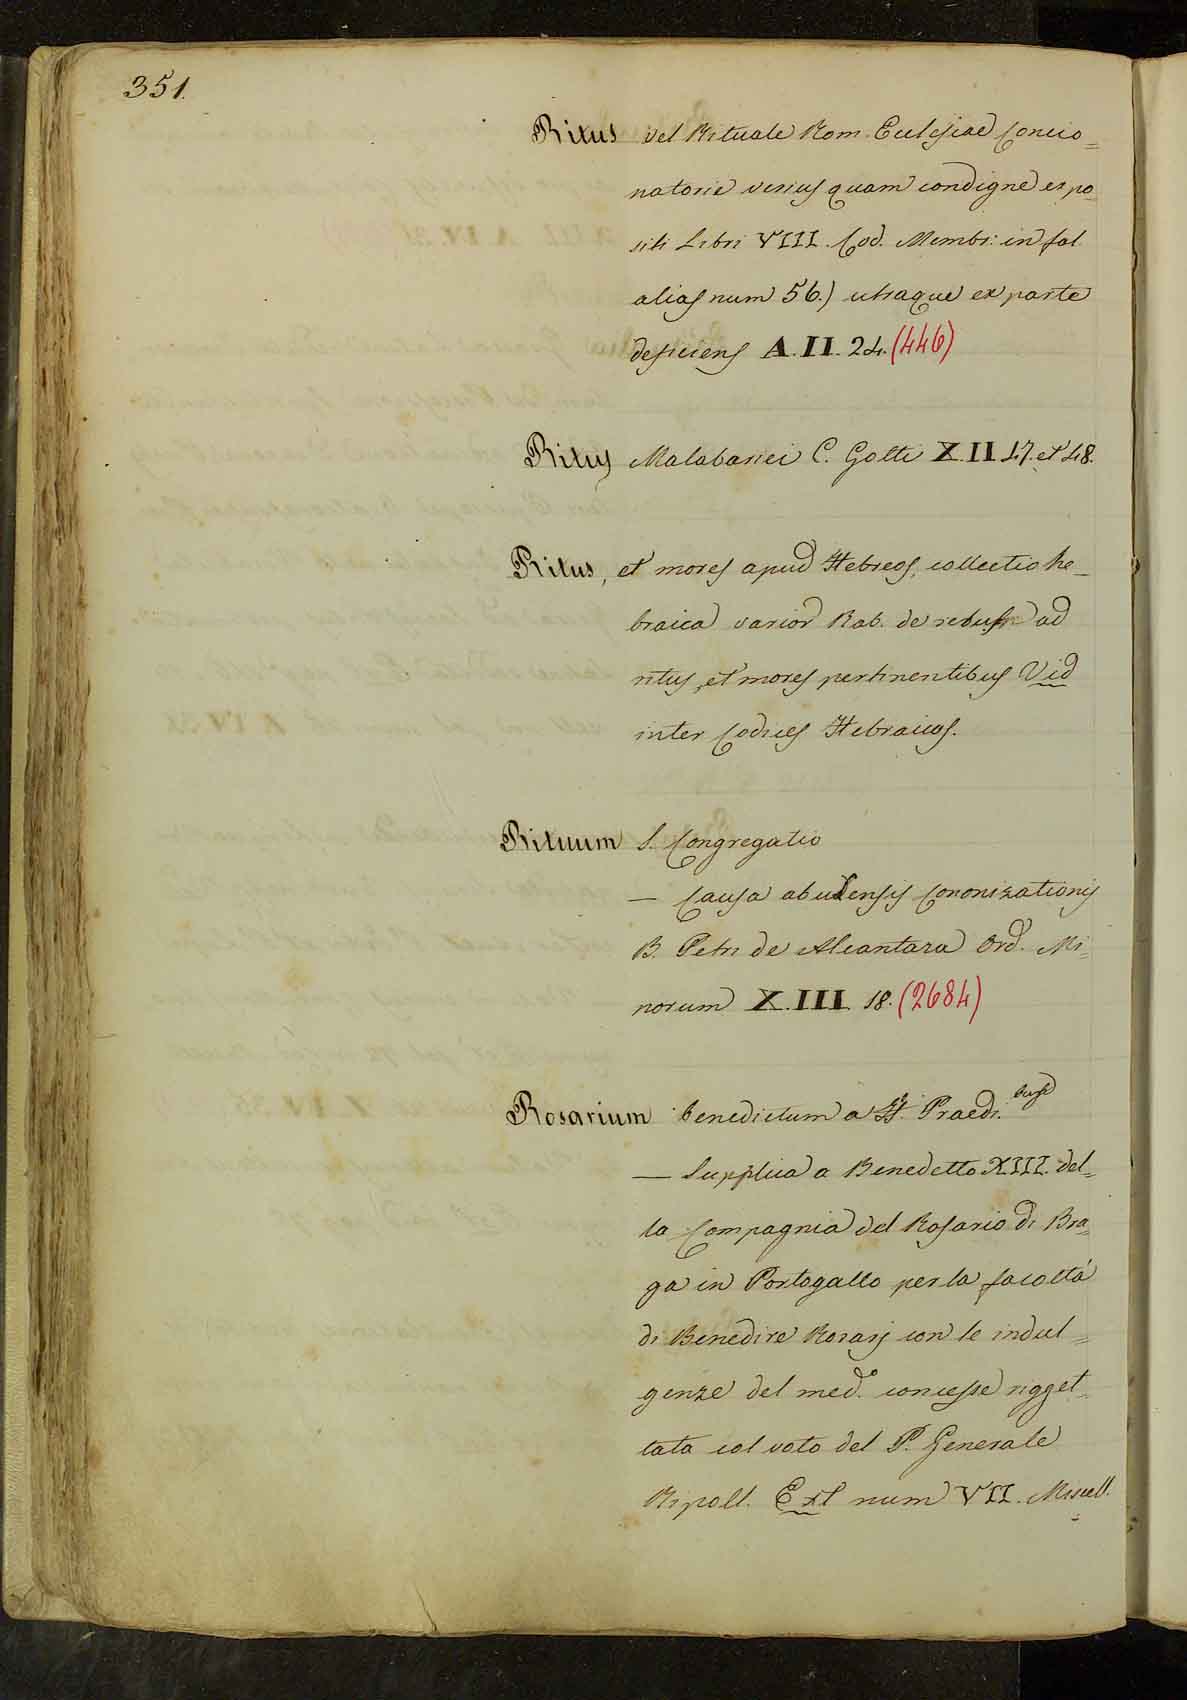 351.
Ritus vel Rituale Rom. Eclesiae Concio=
natorie verius quam condigne expo=
siti Libri VIII. Cod. Membr: in fol.
alias num 56.) utraque ex parte
deficiens A. II. 24. (446)
Ritus Malabarici C. Gotti X. II 47. et 48.
Ritus, et mores apud Hebreos, collectio he_
braica varior Rab. de rebus ad
ritus, et mores pertinentibus Vid
inter Codices Hebraicos.
Rituum S. Congregatio
— Causa abulensis Cononizationis
B. Petri de Alcantara Ord. Mi=
norum X. III. 18. (2684)
Rosarium benedictum a FF. Praedi.bus
— Supplica a Benedetto XIII. del=
la Compagnia del Rosario di Bra=
ga in Portogallo per la facoltà
di Benedire Rosarj con le indul=
genze del med. concesse rigget=
tata col voto del P. Generale
Ripoll. Ext num VII. Miscell.